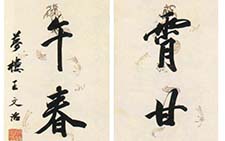 霄甘
午春
夢樓王文治